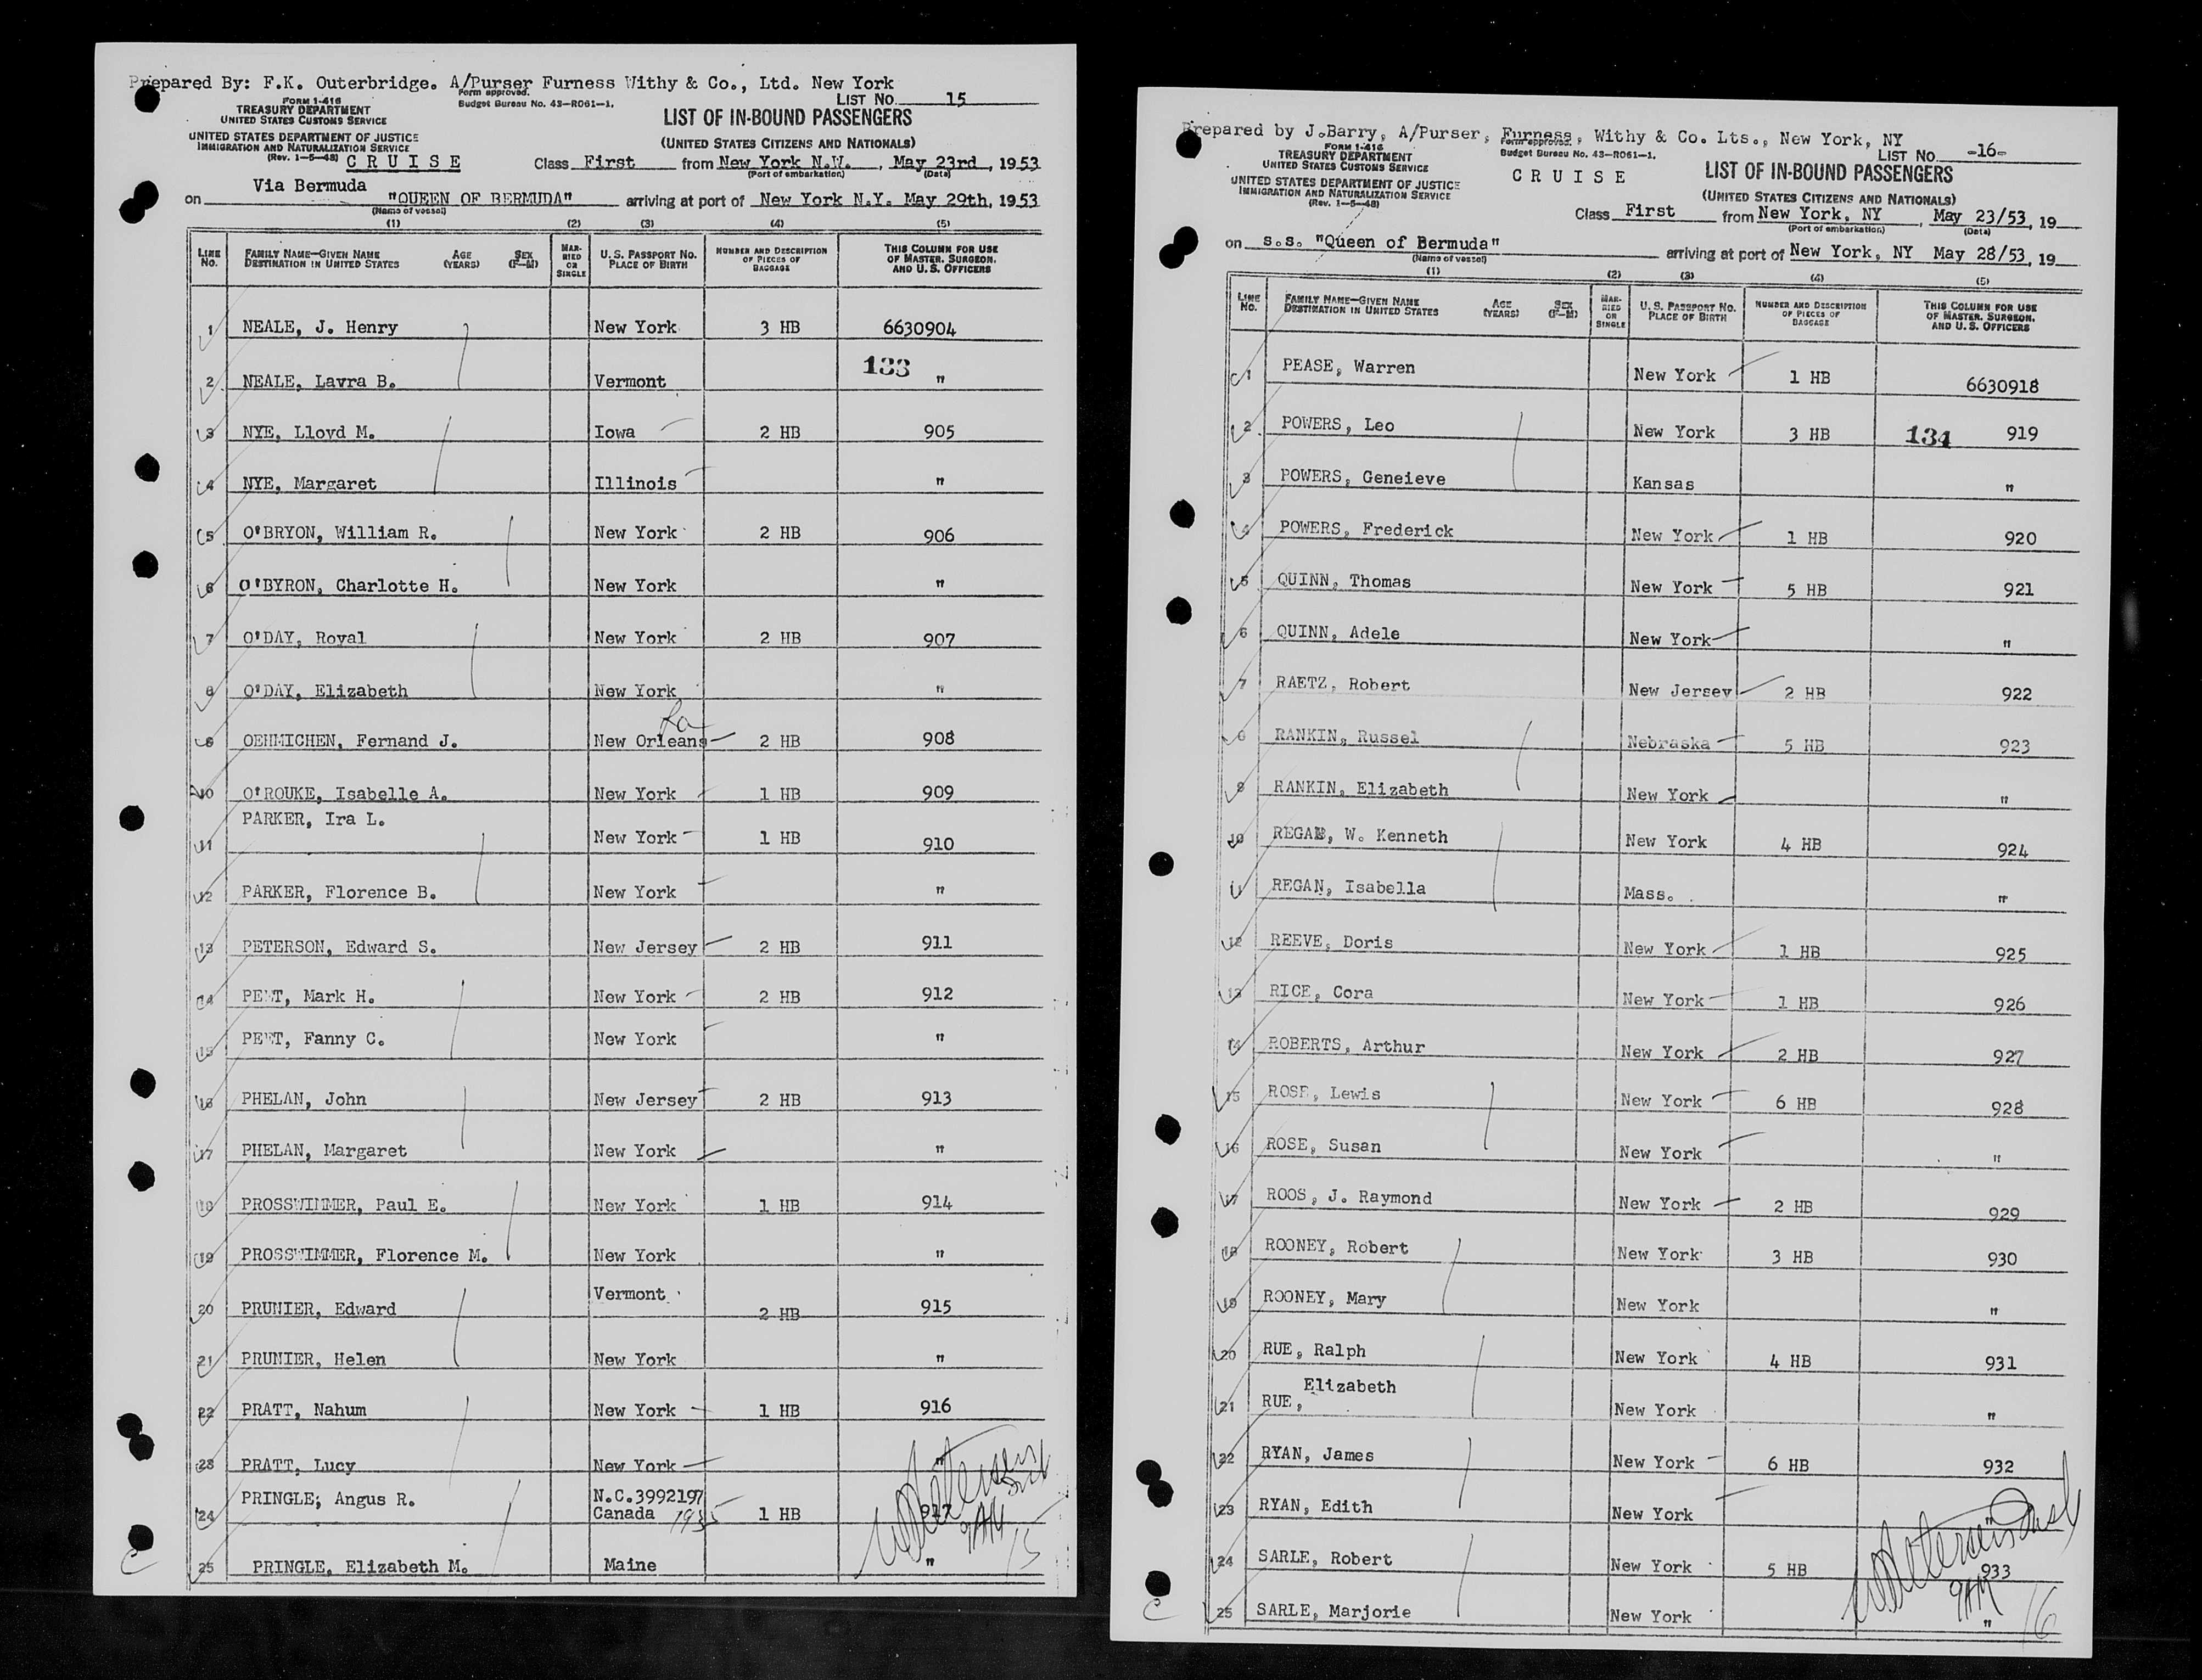 Prepared By: F.K. Outerbridge. A/Purser Furness Withy & Co., Ltd. New York
FORM 1-416
TREASURY DEPARTMENT
UNITED STATES CUSTOMS SERVICE
UNITED STATES DEPARTMENT OF JUSTICE
IMMIGRATION AND NATURALIZATION SERVICE
(Rev. 1-5-48) CRUISE
Form approved.
Budget Bureau No. 43-R061-1.
LIST No. 15
LIST OF IN-BOUND PASSENGERS
(UNITED STATES CITIZENS AND NATIONALS)
Class First from New York N.W., May 23rd, 1953
(Port of embarkation) (Date)
Via Bermuda
on "QUEEN OF BERMUDA" arriving at port of New York N.Y. May 29th, 1953
(Name of vessel)
(1) (2) (3) (4) (5)
LINE No. FAMILY NAME—GIVEN NAME DESTINATION IN UNITED STATES AGE (YEARS) SEX (F-M) MARRIED OR SINGLE U. S. PASSPORT NO. PLACE OF BIRTH NUMBER AND DESCRIPTION OF PIECES OF BAGGAGE THIS COLUMN FOR USE OF MASTER, SURGEON, AND U. S. OFFICERS
1 NEALE, J. Henry New York 3 HB 6630904
133
2 NEALE, Lavra B. Vermont "
3 NYE, Lloyd M. Iowa 2 HB 905
4 NYE, Margaret Illinois "
5 O'BRYON, William R. New York 2 HB 906
6 O'BYRON, Charlotte H. New York "
7 O'DAY, Royal New York 2 HB 907
8 O'DAY, Elizabeth New York "
9 OEHMICHEN, Fernand J. New Orleans 2 HB 908
10 O'ROUKE, Isabelle A. New York 1 HB 909
11 PARKER, Ira L. New York 1 HB 910
12 PARKER, Florence B. New York "
13 PETERSON, Edward S. New Jersey 2 HB 911
14 PEET, Mark H. New York 2 HB 912
15 PEET, Fanny C. New York "
16 PHELAN, John New Jersey 2 HB 913
17 PHELAN, Margaret New York "
18 PROSSWIMMER, Paul E. New York 1 HB 914
19 PROSSWIMMER, Florence M. New York "
20 PRUNIER, Edward Vermont 2 HB 915
21 PRUNIER, Helen New York "
22 PRATT, Nahum New York 1 HB 916
23 PRATT, Lucy New York "
24 PRINGLE, Angus R. N.C.3992197 Canada 1935 1 HB 917
9AM
15
25 PRINGLE, Elizabeth M. Maine "
Prepared by J.Barry, A/Purser, Furness, Withy & Co. Lts., New York, NY
FORM 1-416
TREASURY DEPARTMENT
UNITED STATES CUSTOMS SERVICE
UNITED STATES DEPARTMENT OF JUSTICE
IMMIGRATION AND NATURALIZATION SERVICE
(Rev. 1-5-48)
Form approved.
Budget Bureau No. 43-R061-1.
CRUISE
LIST No. -16-
LIST OF IN-BOUND PASSENGERS
(UNITED STATES CITIZENS AND NATIONALS)
Class First from New York, NY, May 23/53, 19
(Port of embarkation) (Date)
on s.s. "Queen of Bermuda" arriving at port of New York, NY May 28/53, 19
(Name of vessel)
(1) (2) (3) (4) (5)
LINE No. FAMILY NAME—GIVEN NAME DESTINATION IN UNITED STATES AGE (YEARS) SEX (F-M) MARRIED OR SINGLE U. S. PASSPORT NO. PLACE OF BIRTH NUMBER AND DESCRIPTION OF PIECES OF BAGGAGE THIS COLUMN FOR USE OF MASTER, SURGEON, AND U. S. OFFICERS
1 PEASE, Warren New York 1 HB 6630918
2 POWERS, Leo New York 3 HB 134 919
3 POWERS, Geneieve Kansas "
4 POWERS, Frederick New York 1 HB 920
5 QUINN, Thomas New York 5 HB 921
6 QUINN, Adele New York "
7 RAETZ, Robert New Jersey 2 HB 922
8 RANKIN, Russel Nebraska 5 HB 923
9 RANKIN, Elizabeth New York "
10 REGAN, W. Kenneth New York 4 HB 924
11 REGAN, Isabella Mass. "
12 REEVE, Doris New York 1 HB 925
13 RICE, Cora New York 1 HB 926
14 ROBERTS, Arthur New York 2 HB 927
15 ROSE, Lewis New York 6 HB 928
16 ROSE, Susan New York "
17 ROOS, J. Raymond New York 2 HB 929
18 ROONEY, Robert New York 3 HB 930
19 ROONEY, Mary New York "
20 RUE, Ralph New York 4 HB 931
21 RUE, Elizabeth New York "
22 RYAN, James New York 6 HB 932
23 RYAN, Edith New York "
24 SARLE, Robert New York 5 HB 933
9AM
16
25 SARLE, Marjorie New York "